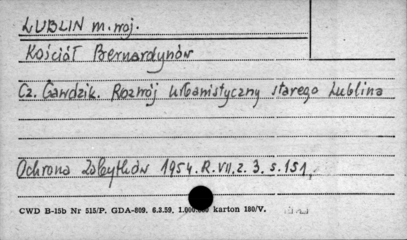 LUBLIN m. woj.
Kościół Bernardynów
Cz. Gawdzik. Rozwój urbanistyczny starego Lublina
Ochrona Zabytków 1954. R. VII. z. 3. s. 151,
CWD B-15b Nr 515/P. GDA-809. 6.3.59. karton 180/V.